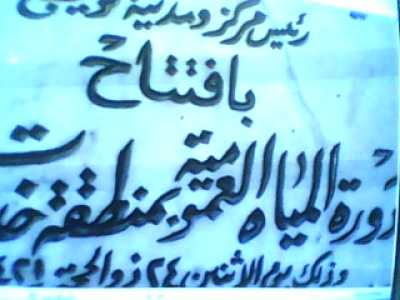 رئيس مركز ومدينة
بافتتاح
دورة المياه العمومية بمنطقة
وذلك يوم الاثنين ٢٤ ذو الحجة